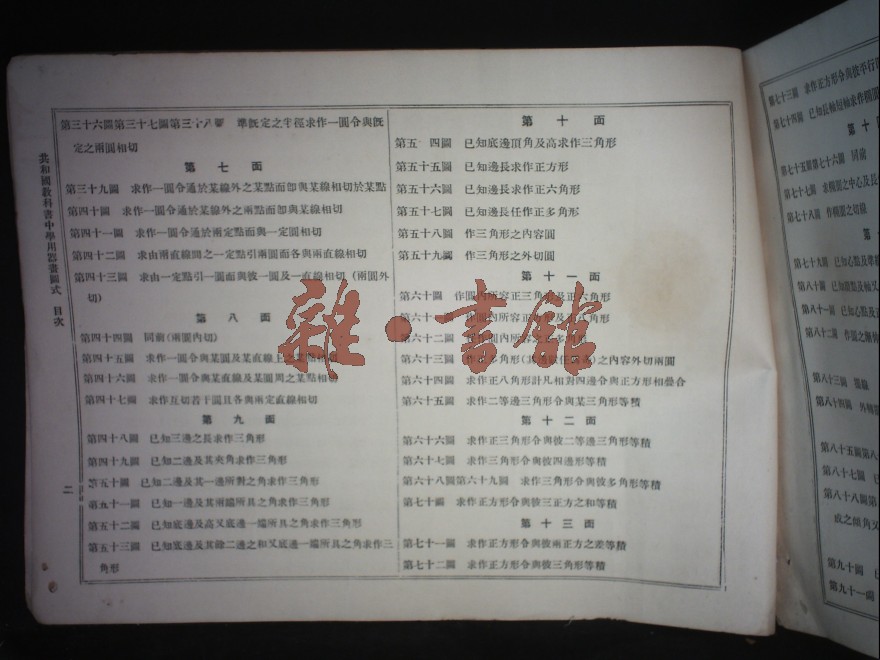 共和國教科書中學用器畫圖式 目次
二
第三十六圖第三十七圖第三十八圖 準既定之半徑求作一圓令與既
定之兩圓相切
第七面
第三十九圖 求作一圓令通於某線外之某點而卽與某線相切於某點
第四十圖 求作一圓令通於某線外之兩點而卽與某線相切
第四十一圖 求作一圓令通於兩定點而與一定圓相切
第四十二圖 求由兩直線間之一定點引兩圓而各與兩直線相切
第四十三圖 求由一定點引一圓而與彼一圓及一直線相切(兩圓外
切)
第八面
第四十四圖 同前(兩圓內切)
第四十五圖 求作一圓令與某圓及某直線上之某點相切
第四十六圖 求作一圓令與某直線及某圓周之某點相切
第四十七圖 求作互切若干圓且各與兩定直線相切
第九面
第四十八圖 已知三邊之長求作三角形
第四十九圖 已知二邊及其夾角求作三角形
第五十圖 已知二邊及其一邊所對之角求作三角形
第五十一圖 已知一邊及其兩端所具之角求作三角形
第五十二圖 已知底邊及高又底邊一端所具之角求作三角形
第五十三圖 已知底邊及其餘二邊之和又底邊一端所具之角求作三
角形
第十面
第五十四圖 已知底邊頂角及高求作三角形
第五十五圖 已知邊長求作正方形
第五十六圖 已知邊長求作正六角形
第五十七圖 已知邊長任作正多角形
第五十八圖 作三角形之內容圓
第五十九圖 作三角形之外切圓
第十一面
第六十圖 作圓內所容正三角形及正六角形
第六十一圖 作圓內所容正方形及正八角形
第六十二圖 作圓內所容之正多角形
第六十三圖 作正多角形(其邊數任意多)之內容外切兩圓
第六十四圖 求作正八角形計凡相對四邊令與正方形相疊合
第六十五圖 求作二等邊三角形令與某三角形等積
第十二面
第六十六圖 求作正三角形令與彼二等邊三角形等積
第六十七圖 求作三角形令與彼四邊形等積
第六十八圖第六十九圖 求作三角形令與彼多角形等積
第七十圖 求作正方形令與彼三正方之和等積
第十三面
第七十一圖 求作正方形令與彼兩正方之差等積
第七十二圖 求作正方形令與彼三角形等積
第七十三圖 求作正方形令與彼平行
第七十四圖 已知長軸短軸求作橢圓
第十
第七十五圖第七十六圖 同前
第七十七圖 求橢圓之中心及長
第七十八圖 作橢圓之切線
第七十九圖 已知心點及準
第八十圖 已知頂點及軸又
第八十一圖 已知心點及
第八十二圖 作圓之漸
第八十三圖 擺線
第八十四圖 外擺
第八十五圖第八
第八十七圖 已
第八十八圖第
成之傾角又
第九十圖
第九十一圖
雜·書館